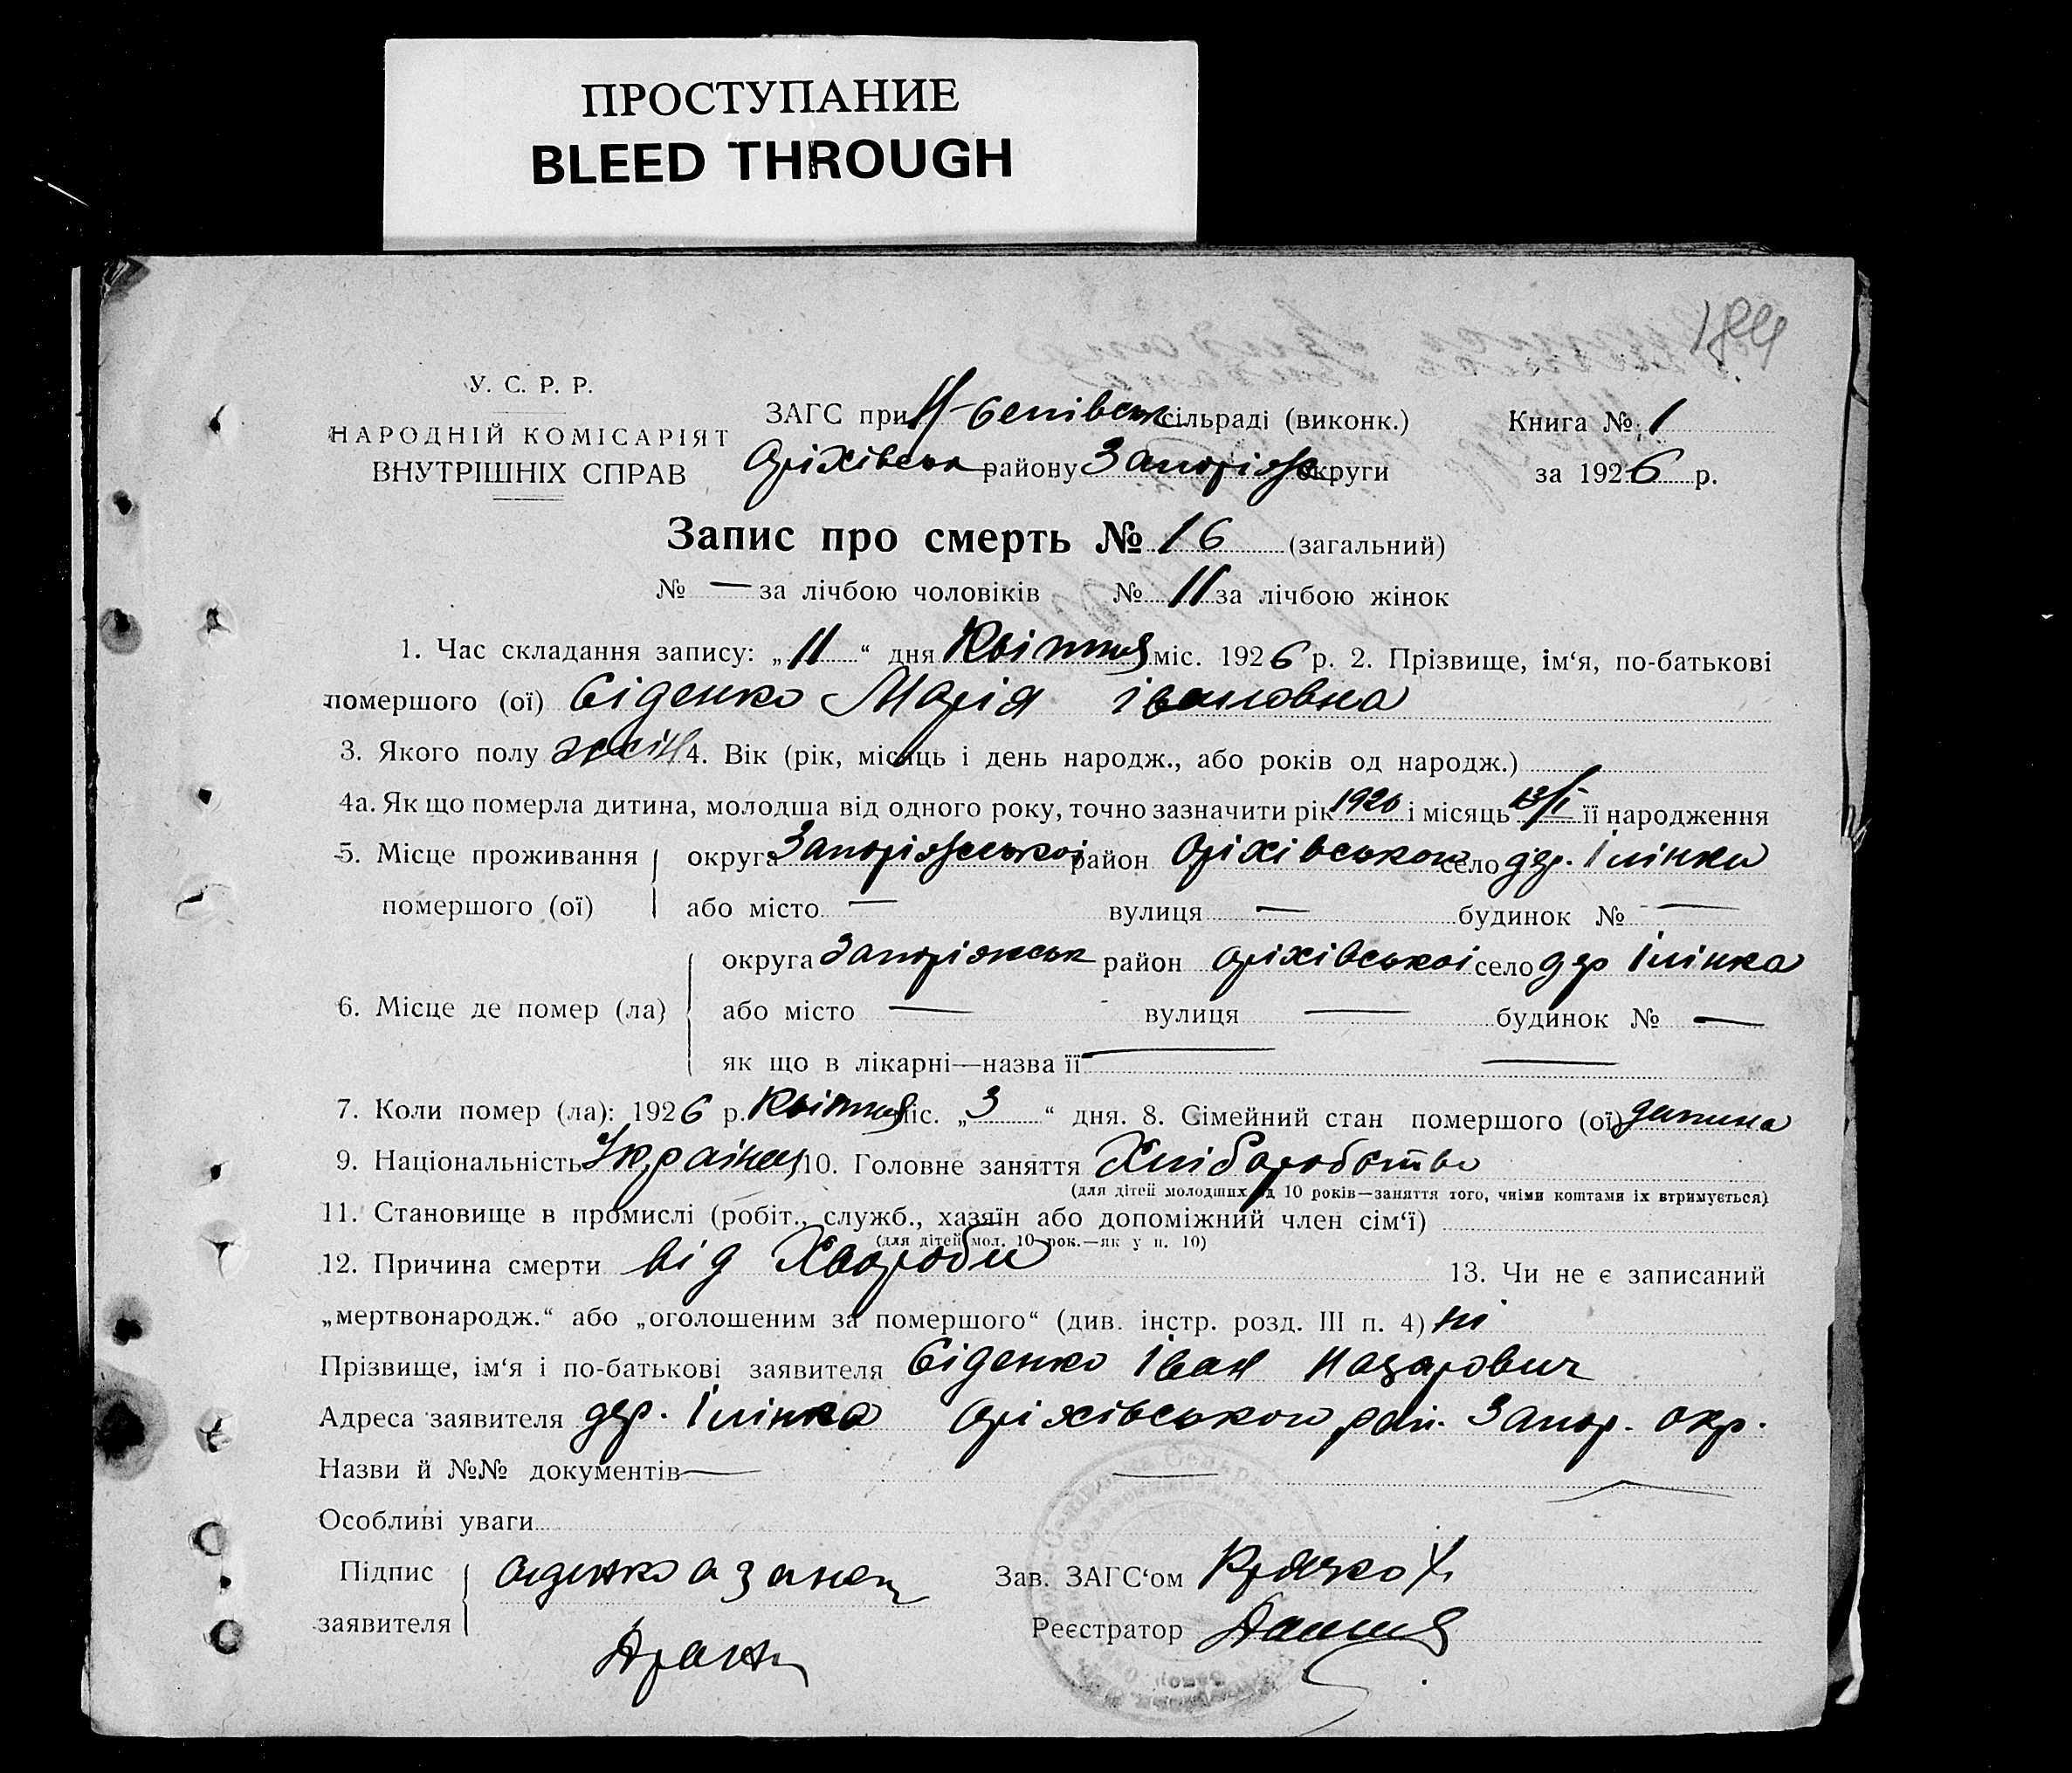 ПРОСТУПАНИЕ
BLEED THROUGH
У. С. Р. Р.
НАРОДНІЙ КОМІСАРІЯТ
ВНУТРІШНІХ СПРАВ
ЗАГС при сільраді (виконк.)
Оріхівськ району Запоріж округи
Книга № 1
за 1926 р.
Запис про смерть № 16 (загальний)
№ — за лічбою чоловіків № 11 за лічбою жінок
1. Час складання запису: „11“ дня Квітня міс. 1926 р. 2. Прізвище, ім‘я, по-батькові
помершого (ої) Сіденко Марія Івановна
3. Якого полу жін 4. Вік (рік, місяць і день народж., або років од народж.)
4а. Як що померла дитина, молодша від одного року, точно зазначити рік 1926 і місяць 13/I її народження
5. Місце проживання помершого (ої) округа Запоріжської район Оріхівського село дер. Ілінка
або місто — вулиця — будинок № —
6. Місце де помер (ла) округа Запоріжськ район Оріхівської село дер Ілінка
або місто — вулиця — будинок № —
як що в лікарні—назва її — —
7. Коли помер (ла): 1926 р. Квітня міс. „3“ дня. 8. Сімейний стан помершого (ої) дитина
9. Національність Українка 10. Головне заняття Хліборобство
(для дітей молодших од 10 років—заняття того, чиїми коштами їх втримується)
11. Становище в промислі (робіт., служб., хазяїн або допоміжний член сім‘ї)
(для дітей мол. 10 рок.—як у п. 10)
12. Причина смерти від Хвороби 13. Чи не є записаний
„мертвонародж.“ або „оголошеним за помершого“ (див. інстр. розд. III п. 4) ні
Прізвище, ім‘я і по-батькові заявителя Сіденко Іван Назарович
Адреса заявителя дер. Ілінка Оріхівського рай. Запор. окр.
Назви й №№ документів — —
Особливі уваги
Підпис заявителя
Зав. ЗАГС‘ом
Реєстратор